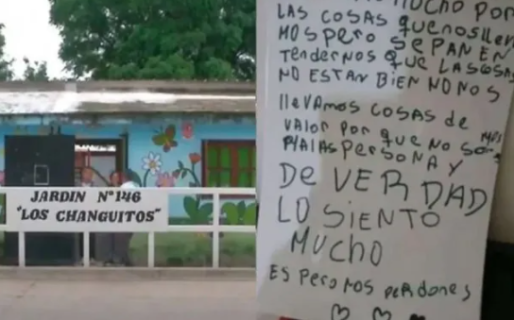 JARDIN Nº146
"LOS CHANGUITOS"
MUCHO POR
LAS COSAS que nos lleva
MOS pero SEPAN EN
Tendernos que LAS COSAS
NO ESTAN BIEN NO NOS
llevamos COSAS de
VALOR por que no somos
MALAS persona y
De VERDAD
LO SIENTO
MUCHO
ES peramos perdones